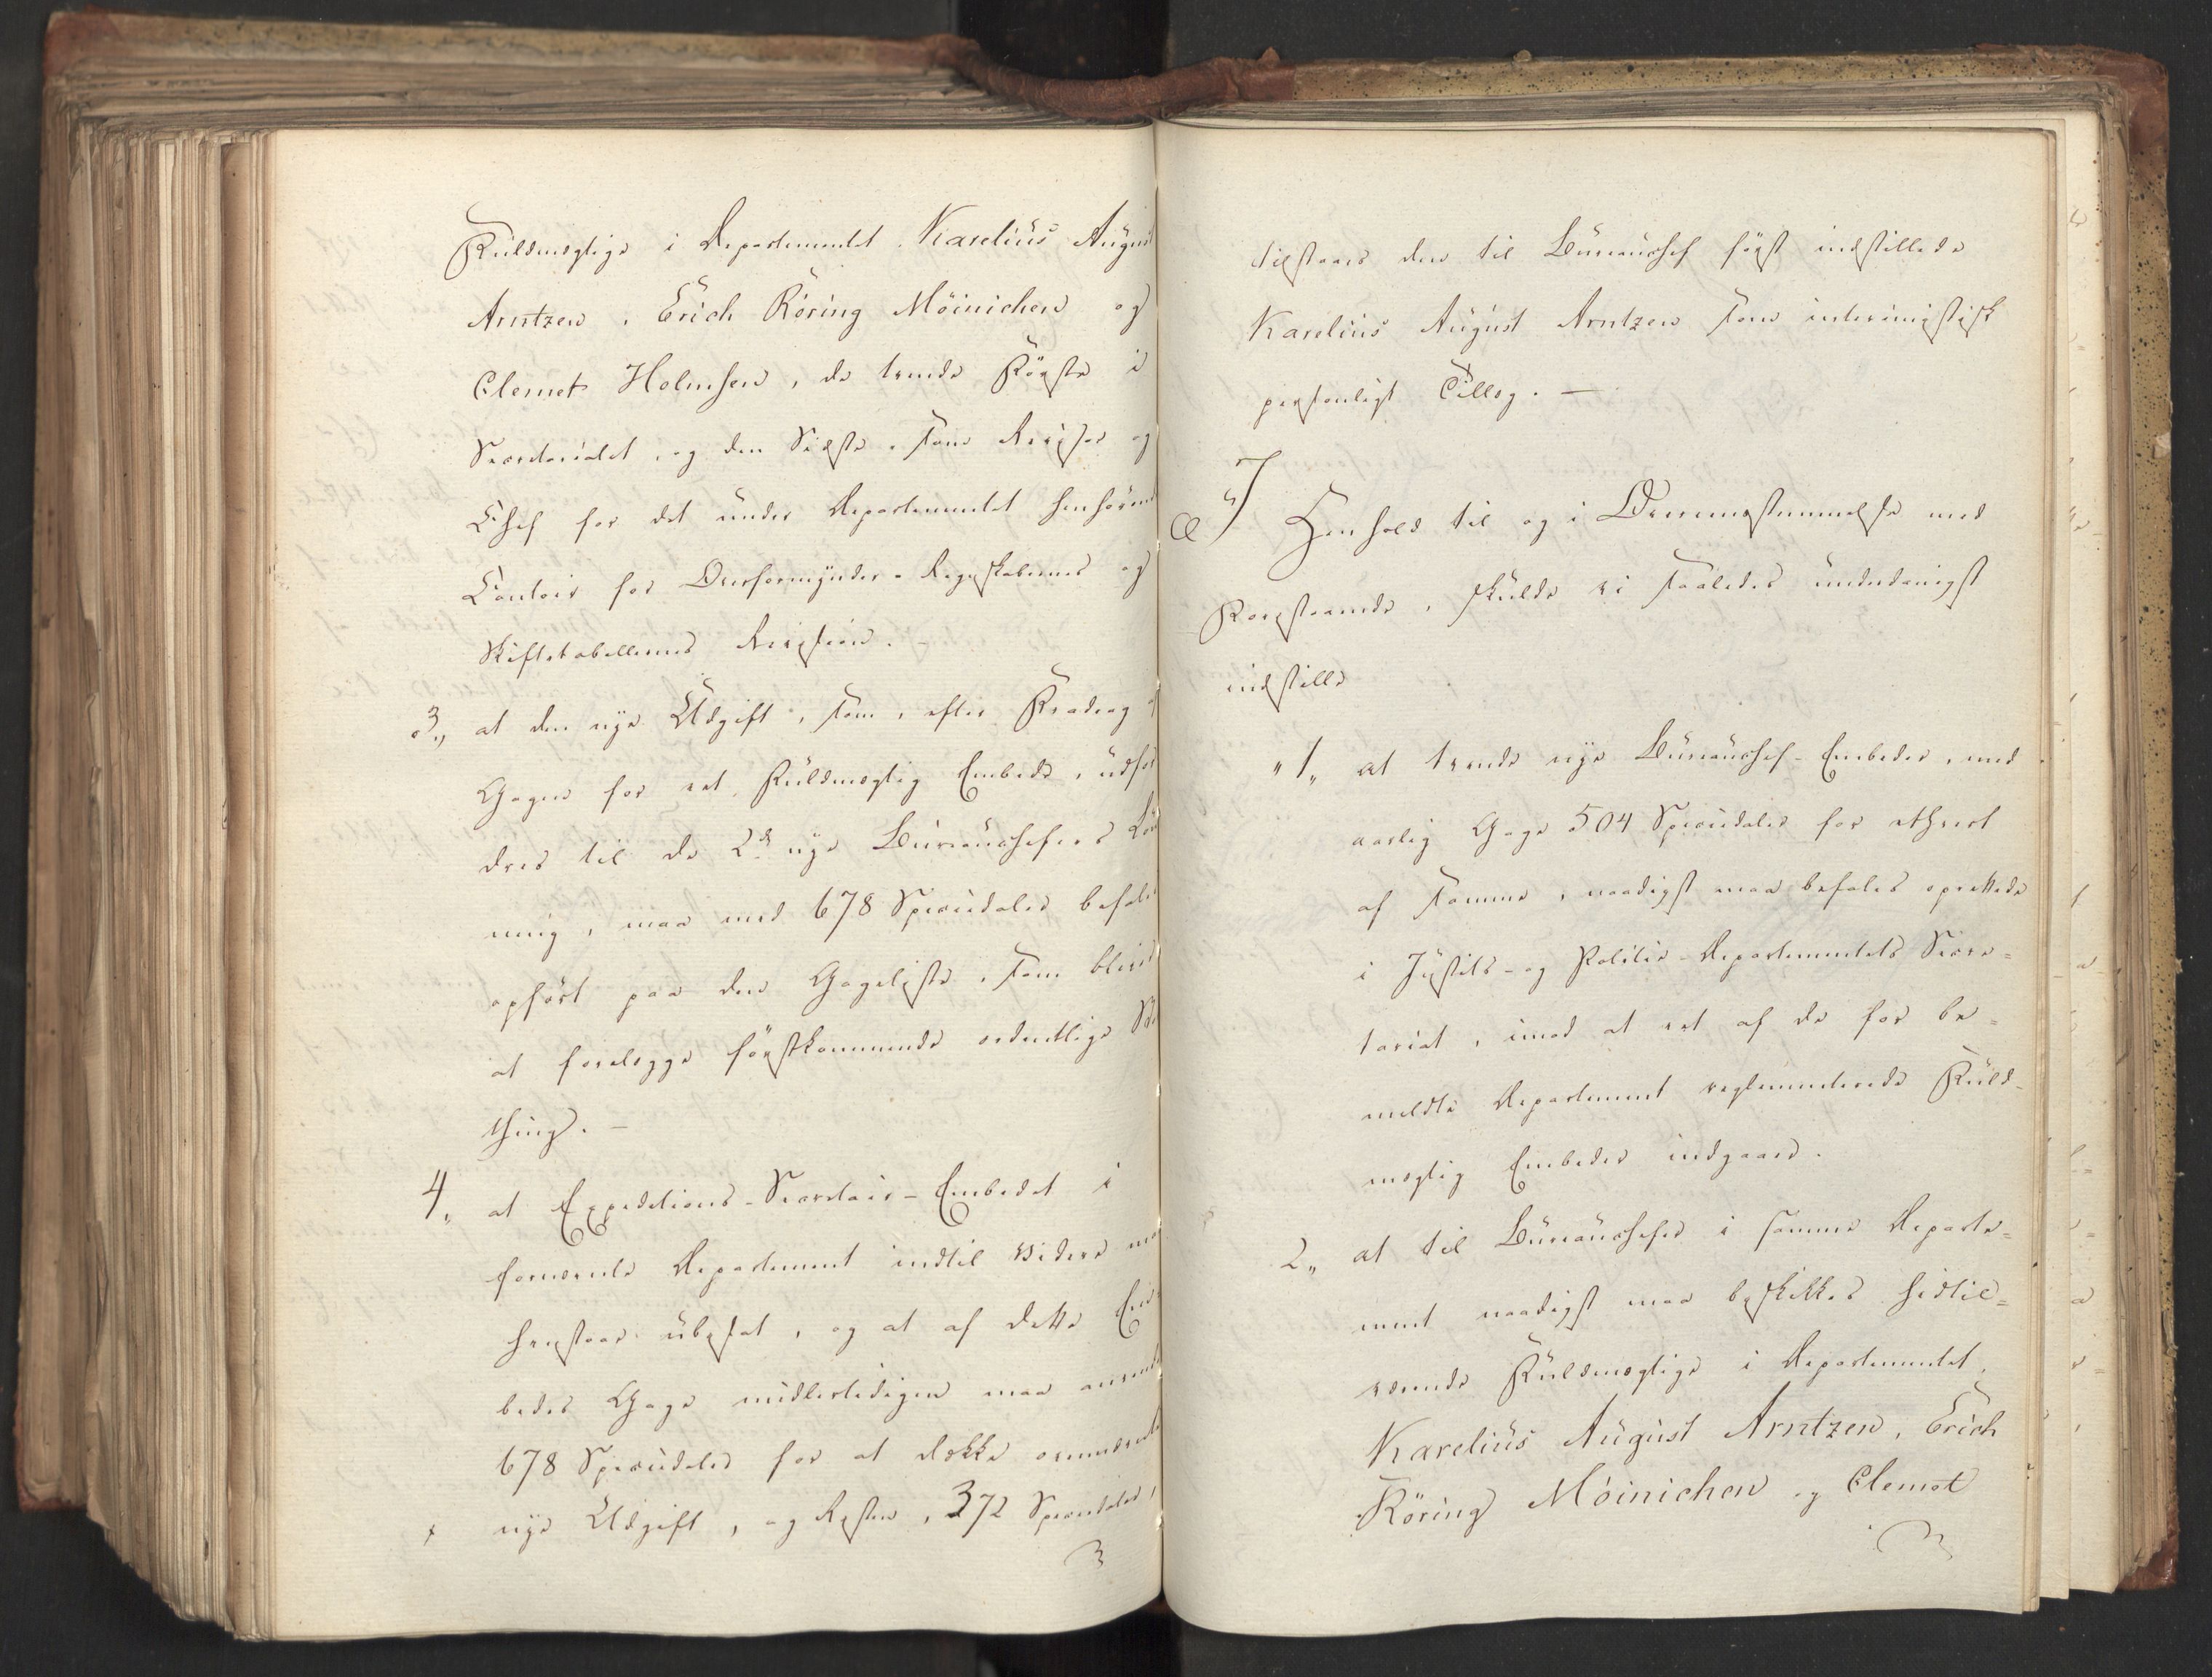 Fuldmægtige i Departementet Karelius August
Arntzen, Erich Röring Möinichen og
Clemet Holmsen, de tvende Förste i
Secretariatet, og den Sidste som Revisor og
Chef for det under Departementet henhörende
Contoir for Overformynder-Regnskabernes og
Skiftetabellernes Revision. -
3,, at den nye Udgift, som, efter Fradrag af
Gagen for eet Fuldmægtig Embede, udfor
dres til de 2de nye Bureauchefers Lön
ning, maa med 678 Speciedaler befales
opfört paa den Gageliste, som bliver
at forelægge förstkommende ordentlige Stor
thing. -
4,, at Expeditions-Secretair-Embedet i
fornævnte Departement indtil videre maa
henstaae ubesat, og at af dette Em
bedes Gage midlertidigen maa anvendes
678 Speciedaler for at dække ovennævnte
nye Udgift, og Resten, 372 Speciedaler,
tilstaaes den til Bureauchef først indstillede
Karelius August Arntzen som interimistisk
personligt Tillæg. -
I
Henhold til og i Overeensstemmelse med
Forestaaende, skulde vi saaledes underdanigst
indstille
"1,, at tvende nye Bureauchef-Embeder, med
aarlig Gage 504 Speciedaler for ethvert
af samme, naadigst maa befales oprettede
i Justits- og Politie-Departementets Secre=
tariat, imod at eet af de for be=
meldte Departement reglementerede Fuld-
mægtig Embeder indgaaer.
2,, at til Bureauchefer i samme Departe=
ment naadigst maa beskikkes hidtil=
værende Fuldmægtige i Departementet,
Karelius August Arntzen, Erich
Röring Möinichen og Clemet